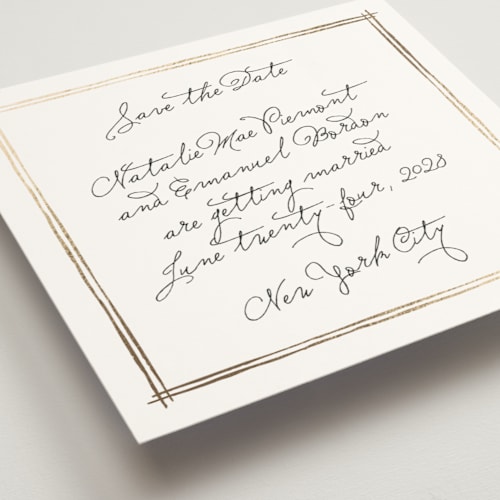 Save the Date
Natalie Mae Piemont
and Emmanuel Bordon
are getting married
June twenty-four, 2028
New York City